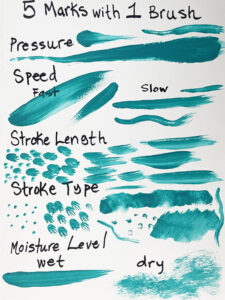 5 Marks with 1 Brush
Pressure
Speed
Fast
Slow
Stroke Length
Stroke Type
Moisture Level
wet
dry